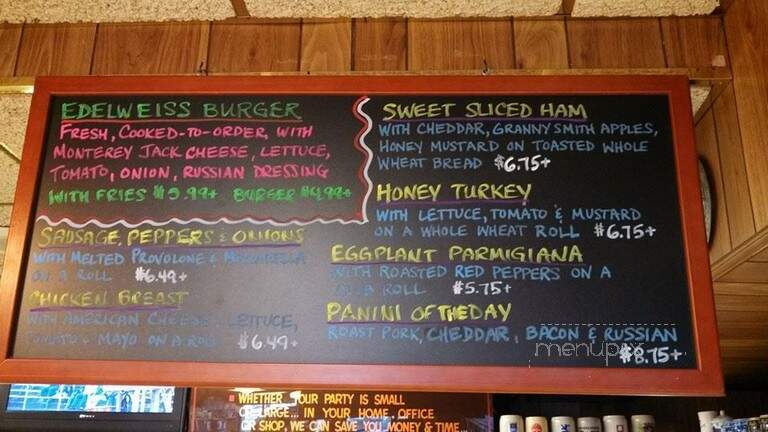 EDELWEISS BURGER
FRESH, COOKED-TO-ORDER, WITH
MONTEREY JACK CHEESE, LETTUCE,
TOMATO, ONION, RUSSIAN DRESSING
WITH FRIES $5.99+ BURGER $4.99+
SAUSAGE, PEPPERS & ONIONS
WITH MELTED PROVOLONE & MOZZARELLA
ON A ROLL $6.49+
CHICKEN BREAST
WITH AMERICAN CHEESE, LETTUCE,
TOMATO & MAYO ON A ROLL $6.49+
SWEET SLICED HAM
WITH CHEDDAR, GRANNY SMITH APPLES,
HONEY MUSTARD ON TOASTED WHOLE
WHEAT BREAD $6.75+
HONEY TURKEY
WITH LETTUCE, TOMATO & MUSTARD
ON A WHOLE WHEAT ROLL $6.75+
EGGPLANT PARMIGIANA
WITH ROASTED RED PEPPERS ON A
ROLL $5.75+
PANINI OF THE DAY
ROAST PORK, CHEDDAR, BACON & RUSSIAN
$8.75+
menupix
WHETHER YOUR PARTY IS SMALL
OR LARGE... IN YOUR HOME, OFFICE
OR SHOP, WE CAN SAVE YOU MONEY & TIME...